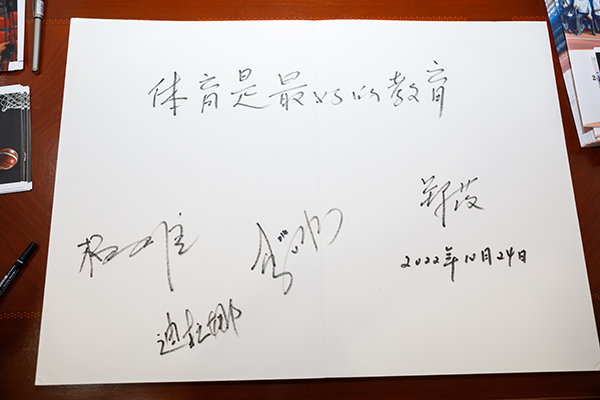 体育是最好的教育
郑薇
2022年10月24日
迪拉娜